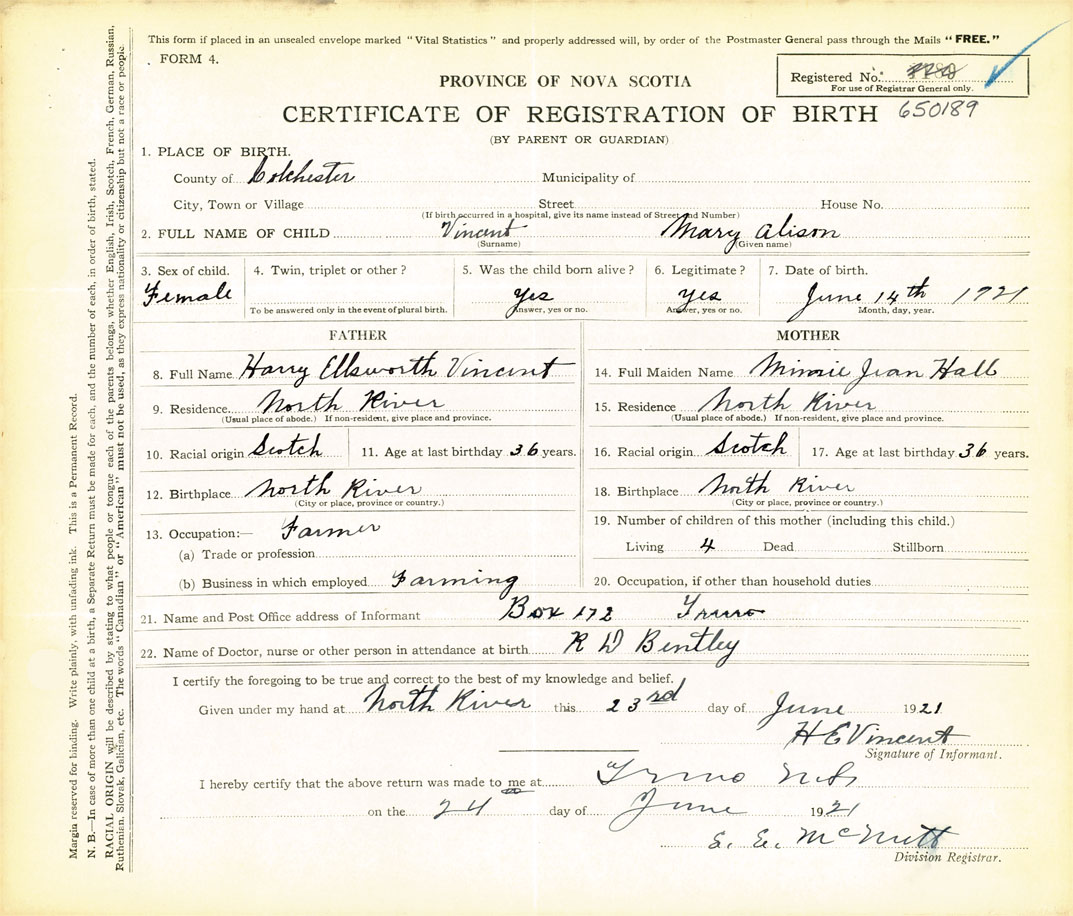 This form if placed in an unsealed envelope marked "Vital Statistics" and properly addressed will, by order of the Postmaster General pass through the Mails "FREE."
FORM 4.
Registered No.
For use of Registrar General only.
PROVINCE OF NOVA SCOTIA
CERTIFICATE OF REGISTRATION OF BIRTH 650189
(BY PARENT OR GUARDIAN)
1. PLACE OF BIRTH.
County of Colchester Municipality of
City, Town or Village Street House No.
(If birth occurred in a hospital, give its name instead of Street and Number)
2. FULL NAME OF CHILD Vincent Mary Alison
(Surname) (Given name)
3. Sex of child. 4. Twin, triplet or other? 5. Was the child born alive? 6. Legitimate? 7. Date of birth.
Female yes yes June 14th 1921
To be answered only in the event of plural birth. Answer, yes or no. Answer, yes or no. Month, day, year.
FATHER MOTHER
8. Full Name Harry Ellsworth Vincent 14. Full Maiden Name Minnie Jean Hall
9. Residence North River 15. Residence North River
(Usual place of abode.) If non-resident, give place and province. (Usual place of abode.) If non-resident, give place and province.
10. Racial origin Scotch 11. Age at last birthday 36 years. 16. Racial origin Scotch 17. Age at last birthday 36 years.
12. Birthplace North River 18. Birthplace North River
(City or place, province or country.) (City or place, province or country.)
13. Occupation:— Farmer 19. Number of children of this mother (including this child.)
(a) Trade or profession Living 4 Dead Stillborn
(b) Business in which employed Farming 20. Occupation, if other than household duties
21. Name and Post Office address of Informant Box 172 Truro
22. Name of Doctor, nurse or other person in attendance at birth R D Bentley
I certify the foregoing to be true and correct to the best of my knowledge and belief.
Given under my hand at North River this 23rd day of June 1921
H E Vincent
Signature of Informant.
I hereby certify that the above return was made to me at Truro N.S.
on the 24 day of June 1921
S. E. McNutt
Division Registrar.
Margin reserved for binding. Write plainly, with unfading ink. This is a Permanent Record.
N. B.—In case of more than one child at a birth, a Separate Return must be made for each, and the number of each, in order of birth, stated.
RACIAL ORIGIN will be described by stating to what people or tongue each of the parents belongs, whether English, Irish, Scotch, French, German, Russian,
Ruthenian, Slovak, Galician, etc. The words "Canadian" or "American" must not be used, as they express nationality or citizenship but not a race or people.